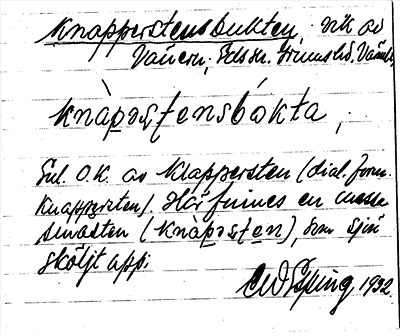 Knapperstensbukten, vik av
Vänern, Ed sn. Grums hd, Värml.
knàpəʂtensbókta,
Enl. O.K. av Klappersten (dial. form
Knappersten). Här finnes en massa
småsten (knàpəʂten), som sjön
sköljt upp.
1932